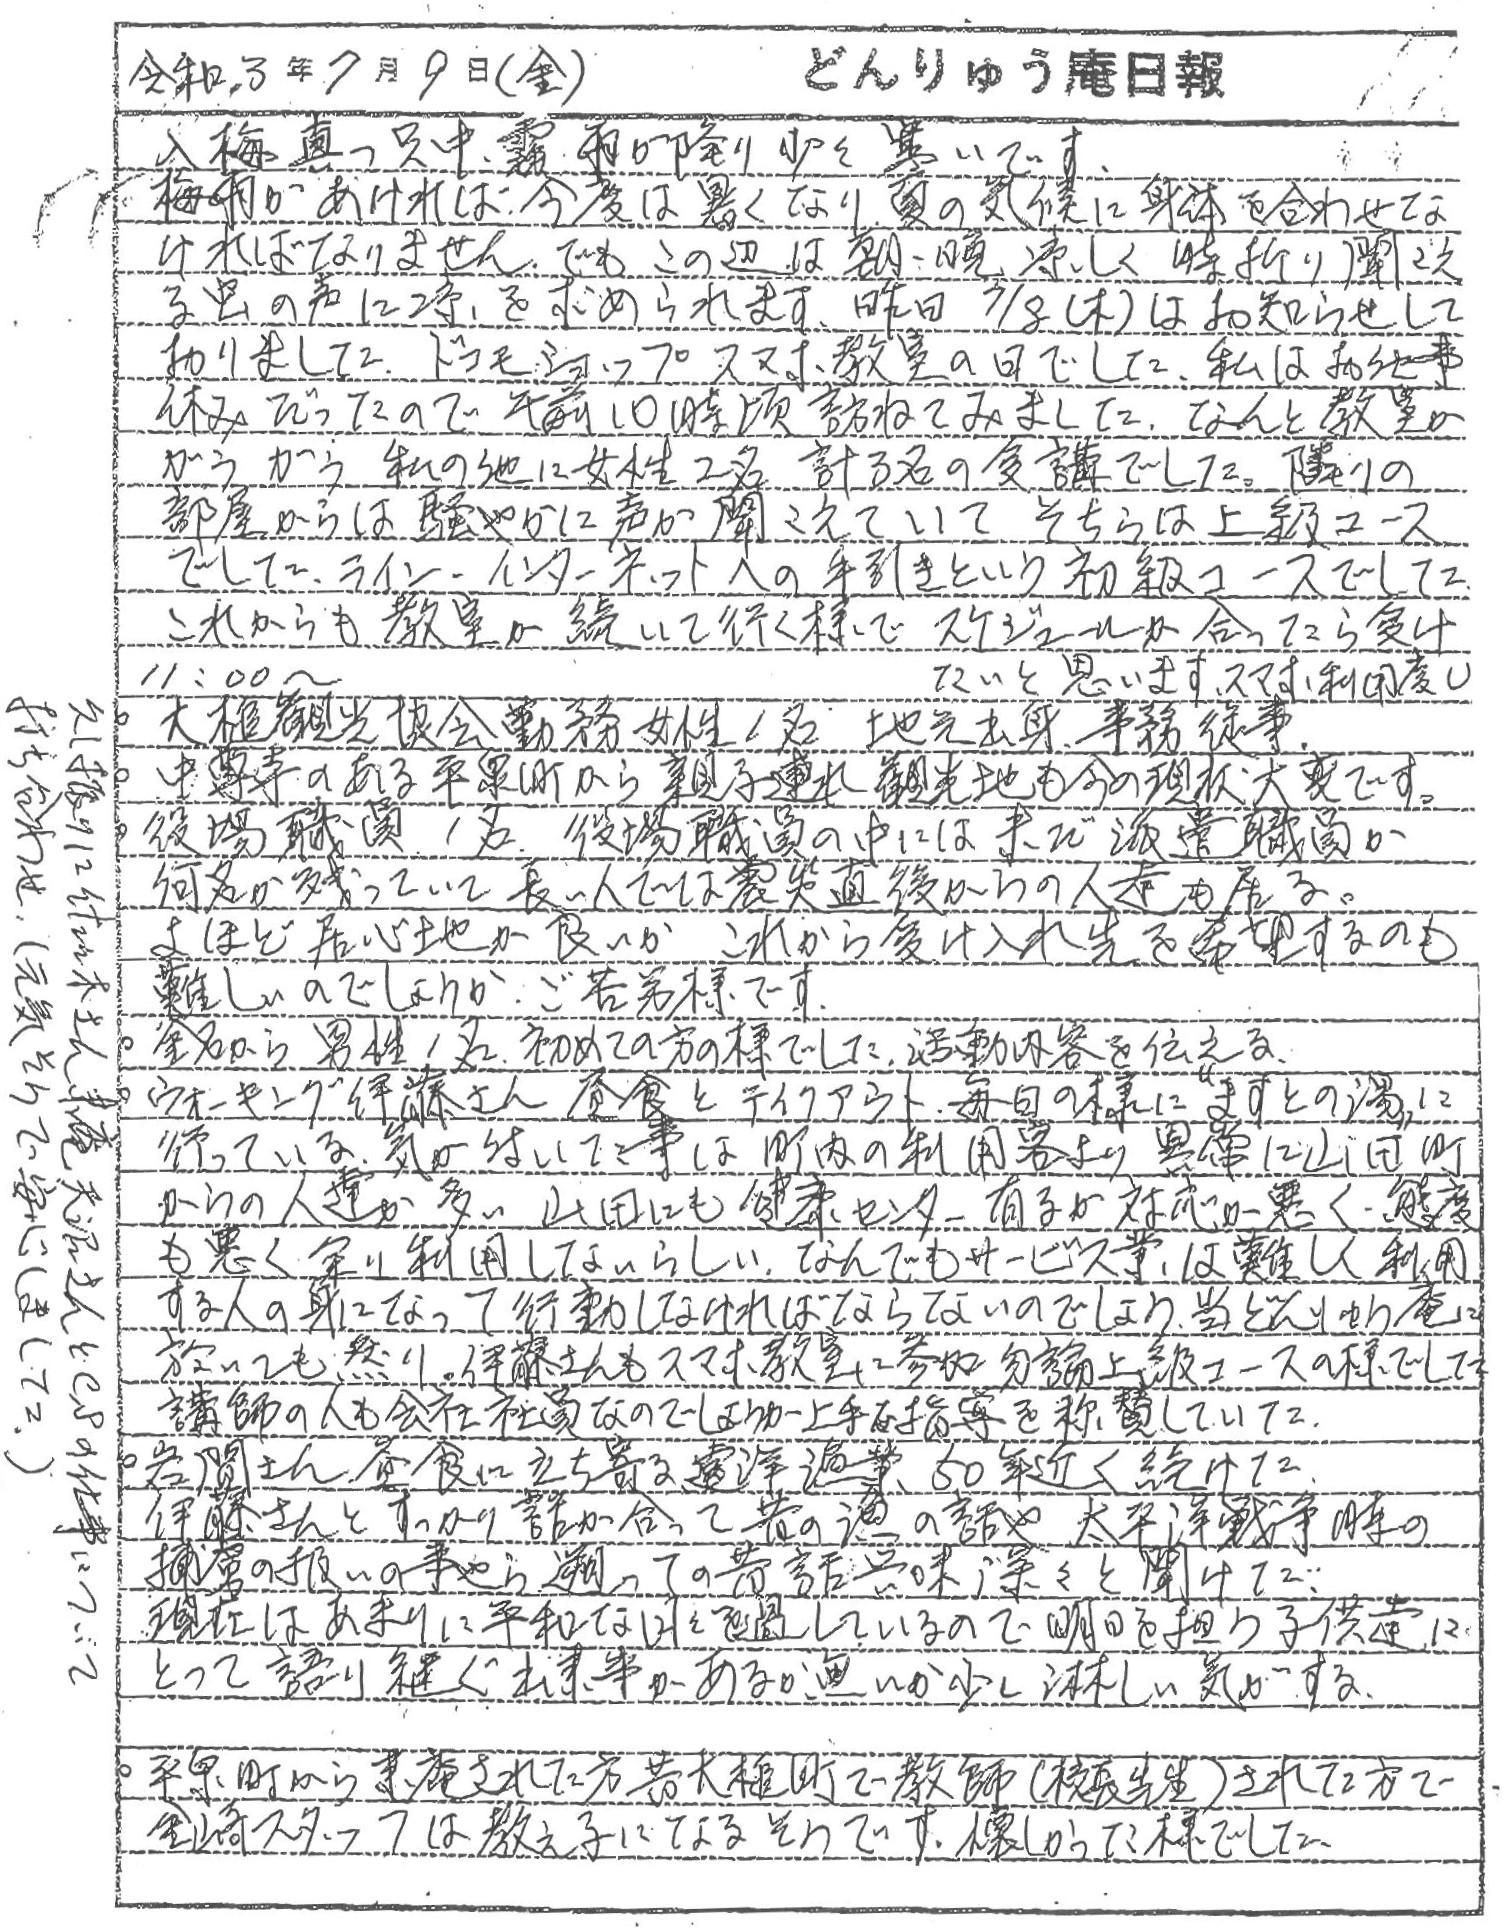 令和3年7月9日(金) どんりゅう庵日報
入梅真っ只中、霧雨が降り少々寒いです。
梅雨があければ、今度は暑くなり夏の気候に身体を合わせな
ければなりません。でもこの辺は朝、晩、涼しく時折り聞こえ
る虫の声に涼を求められます。昨日7/8(木)はお知らせして
おりました。ドコモショップスマホ教室の日でした。私はお仕事
休みだったので午前10時頃訪ねてみました。なんと教室が
がらがら私の他に女性2名計3名の受講でした。隣りの
部屋からは騒やかに声が聞こえていてそちらは上級コース
でした。ライン、インターネットへの手引きという初級コースでした。
これからも教室が続いて行く様でスケジュールが合ったら受け
11:00〜 たいと思います。スマホ利用度し
○大槌観光協会勤務女性1名 地元出身、事務従事。
○中尊寺のある平泉町から親子連れ観光地も今の現状大変です。
○役場職員1名。役場職員の中には未だ派遣職員が
何名か残っていて長い人では震災直後からの人達も居る。
よほど居心地が良いか これから受け入れ先を希望するのも
難しいのでしょうか。ご苦労様です。
○釜石から男性1名、初めての方の様でした。活動内容を伝える。
○ウォーキング伊藤さん 昼食とテイクアウト、毎日の様に"ますとの湯"に
行っている。気が付いた事は町内の利用客より異常に山田町
からの人達が多い 山田にも健康センター有るが対応が悪く、態度
も悪く余り利用しないらしい。なんでもサービス業は難しく利用
する人の身になって行動しなければならないのでしょう。当どんりゅう庵に
於いても然り。伊藤さんもスマホ教室に参加 勿論上級コースの様でした
講師の人も会社社員なのでしょうか上手な指導を称賛していた。
○岩間さん、昼食に立ち寄る。遠洋漁業、50年近く続けた。
伊藤さんとすっかり話が合って昔の漁の話や太平洋戦争時の
捕虜の扱いの事やら遡っての昔話興味深々と聞けた。
現在はあまりに平和な日々を過しているので明日を担う子供達に
とって語り継ぐ出来事があるか無いか少し淋しい気がする。
○平泉町から来庵された方昔大槌町で教師(校長先生)された方で
金崎スタッフは教え子になるそうです。懐しかった様でした。
久し振りに さん来庵 さんとCSの仕事について
打ち合わせ。(元気そうで安心しました。)